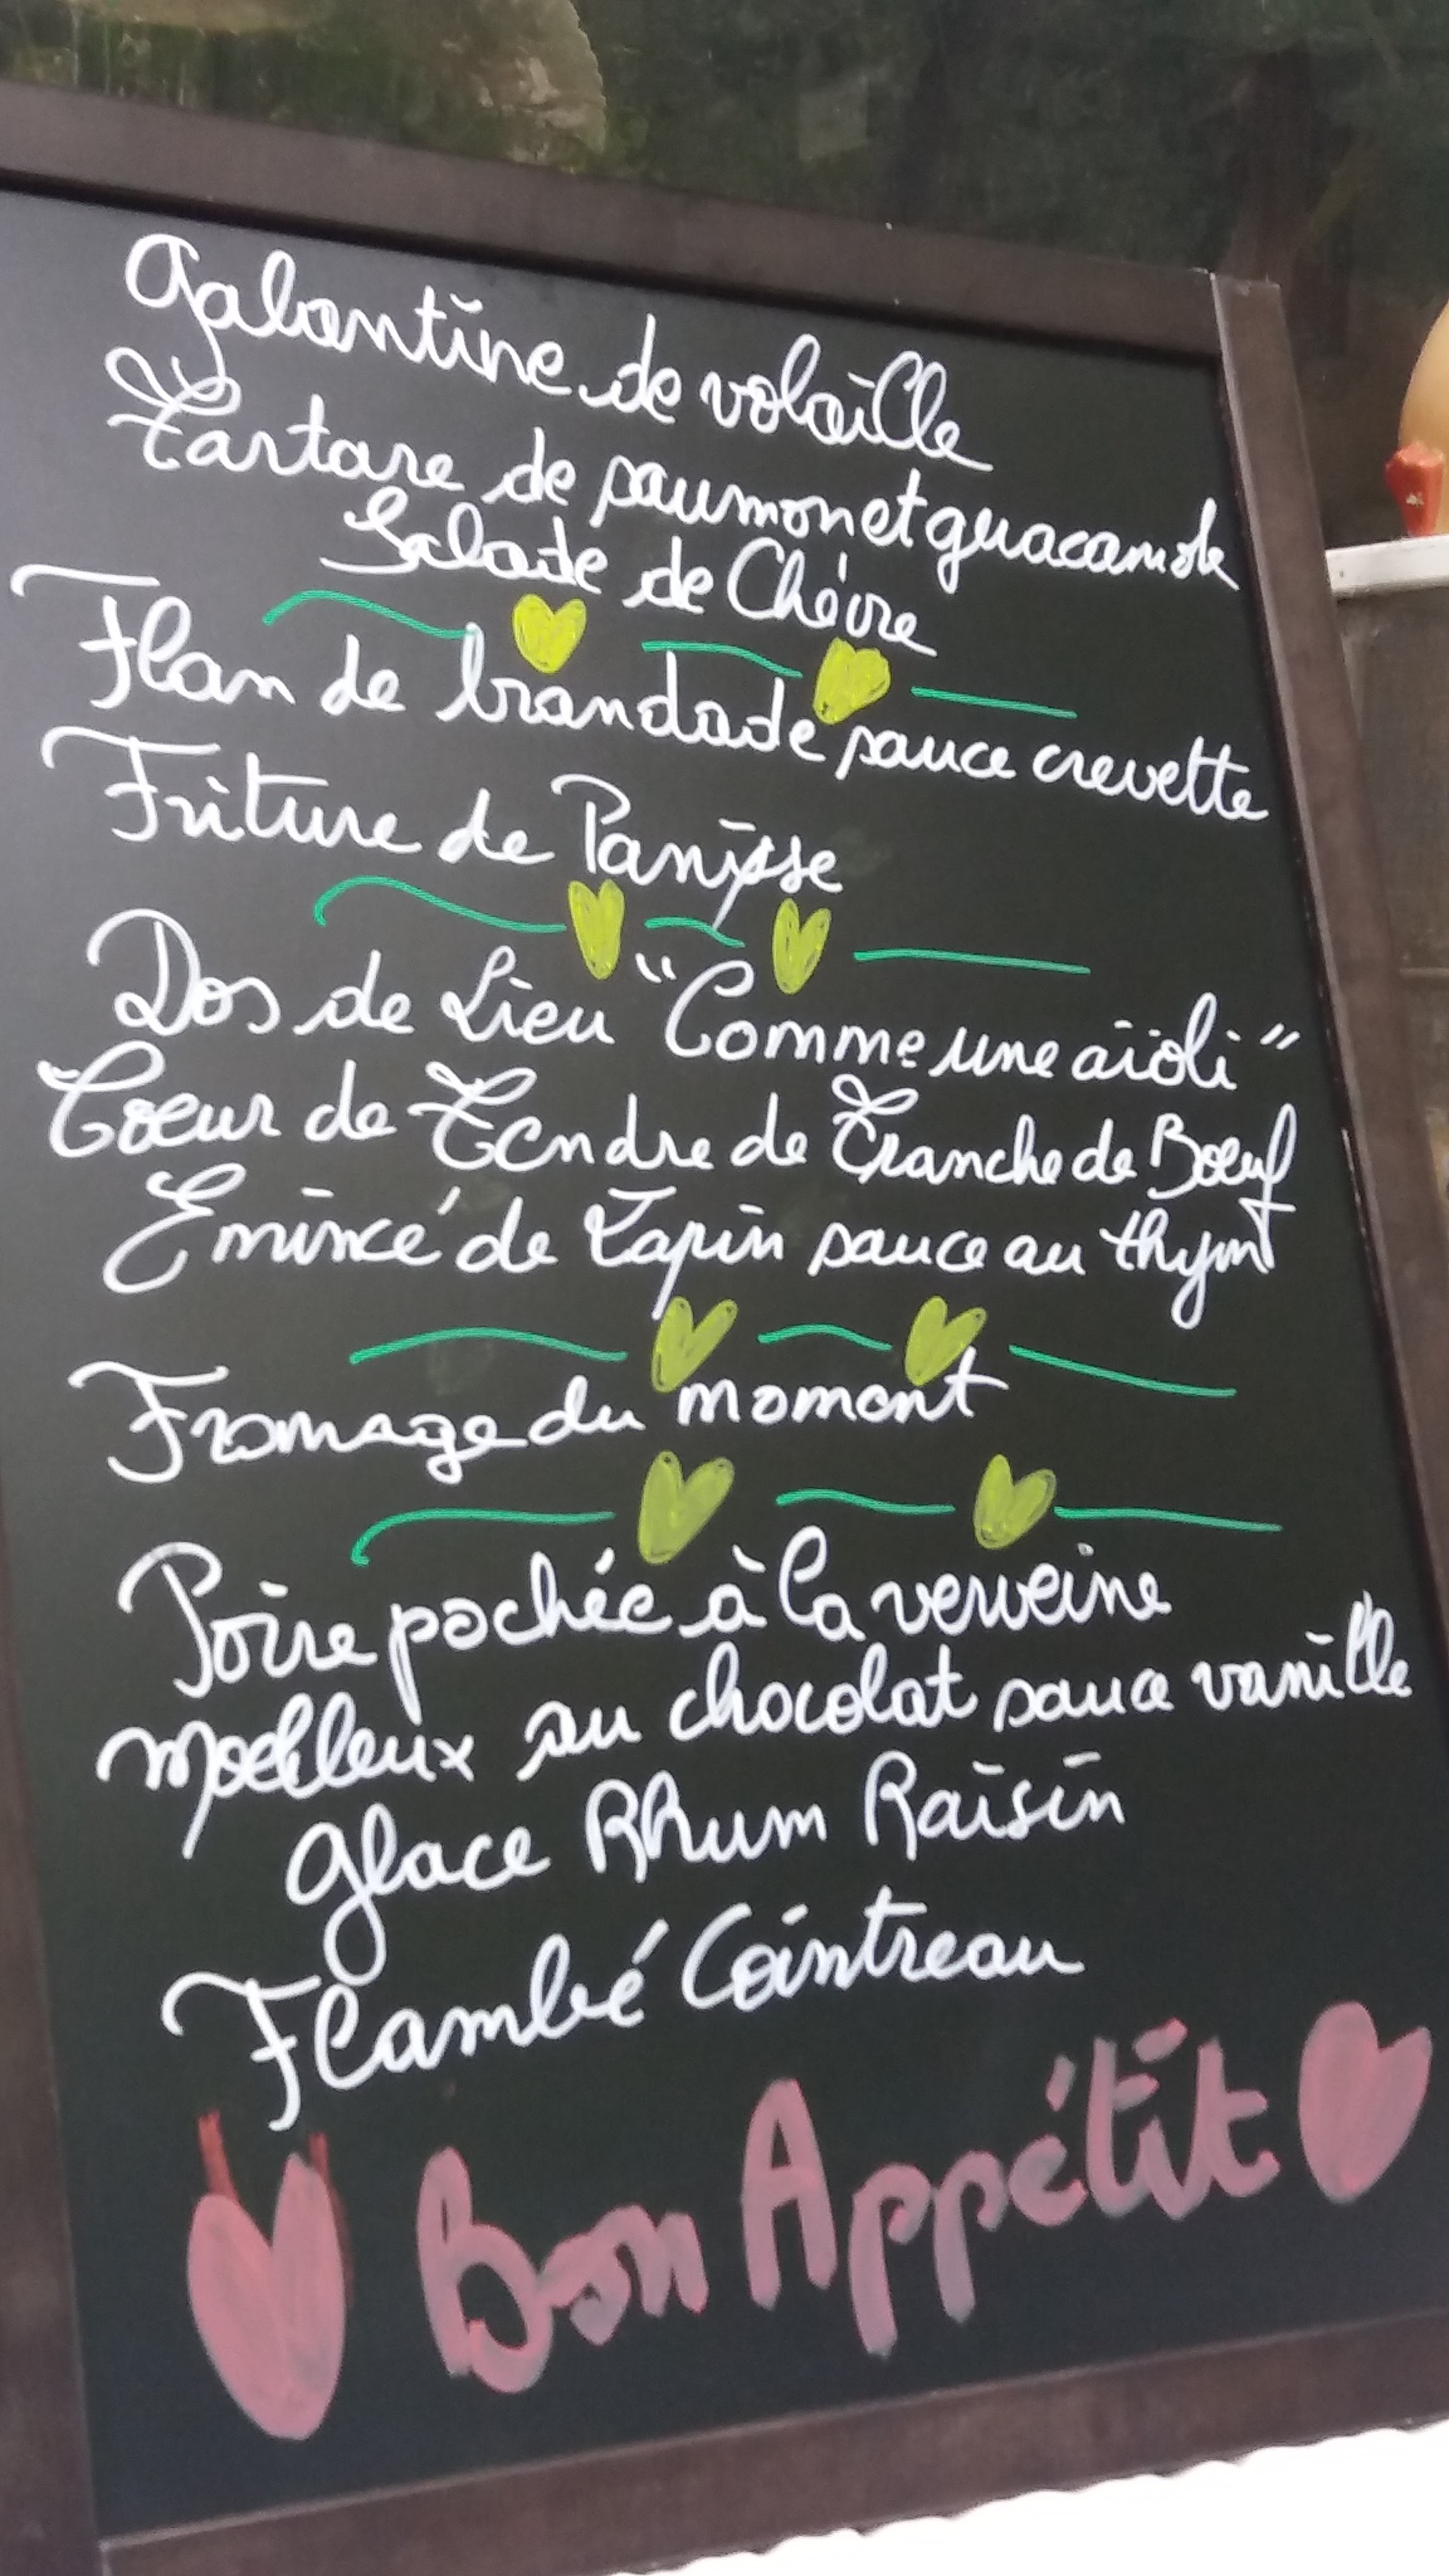 Galantine de volaille
Tartare de saumon et guacamole
Salade de Chèvre
Flan de brandade sauce crevette
Friture de Panisse
Dos de Lieu "Comme une aïoli"
Coeur de Tendre de Tranche de Boeuf
Emincé de Lapin sauce au thym
Fromage du moment
Poire pochée à la verveine
Moelleux au chocolat sauce vanille
Glace Rhum Raisin
Flambé Cointreau
Bon Appétit